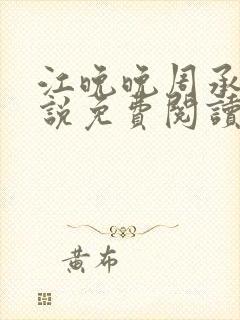 江晚晚周承
說免費閱讀
黃布